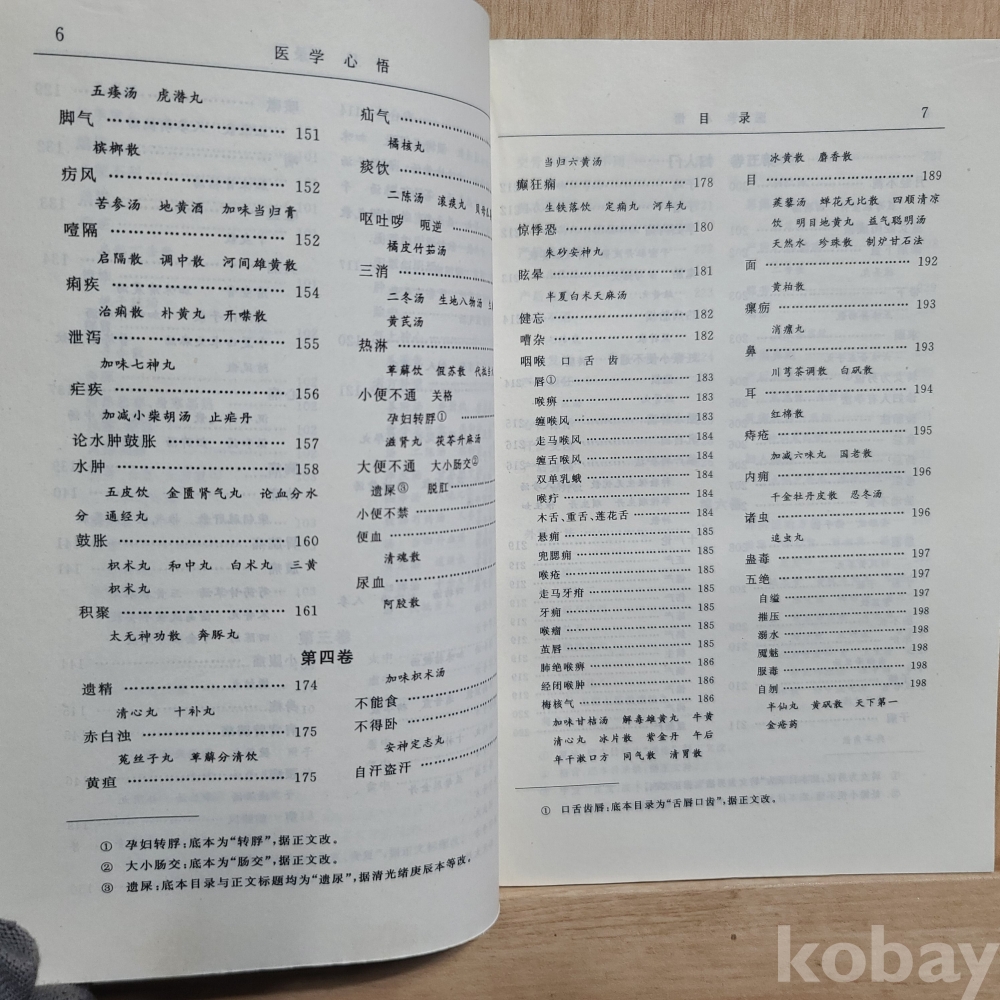 6
医学心悟
五痿汤 虎潜丸
脚气 …………………………… 151
槟榔散
疠风 …………………………… 152
苦参汤 地黄酒 加味当归膏
噎隔 …………………………… 152
启隔散 调中散 河间雄黄散
痢疾 …………………………… 154
治痢散 朴黄丸 开噤散
泄泻 …………………………… 155
加味七神丸
疟疾 …………………………… 156
加减小柴胡汤 止疟丹
论水肿鼓胀 …………………… 157
水肿 …………………………… 158
五皮饮 金匮肾气丸 论血分水
分 通经丸
鼓胀 …………………………… 160
枳术丸 和中丸 白术丸 三黄
枳术丸
积聚 …………………………… 161
太无神功散 奔豚丸
第四卷
遗精 …………………………… 174
清心丸 十补丸
赤白浊 ………………………… 175
菟丝子丸 萆薢分清饮
黄疸 …………………………… 175
疝气 ……………………
橘核丸
痰饮 ……………………
二陈汤 滚痰丸
呕吐哕 呃逆 ……………
橘皮竹茹汤
三消 ……………………
二冬汤 生地八物汤
黄芪汤
热淋 ……………………
萆薢饮 假苏散
小便不通 关格
孕妇转脬① ……………
滋肾丸 茯苓升麻汤
大便不通 大小肠交②
遗屎③ 脱肛 ……………
小便不禁 ………………
便血 ……………………
清魂散
尿血 ……………………
阿胶散
加味枳术汤
不能食 …………………
不得卧 …………………
安神定志丸
自汗盗汗 ………………
① 孕妇转脬：底本为“转脬”，据正文改。
② 大小肠交：底本为“肠交”，据正文改。
③ 遗屎：底本目录与正文标题均为“遗尿”，据清光绪庚辰本等改。
目录
7
当归六黄汤
癫狂痫 ………………………… 178
生铁落饮 定痫丸 河车丸
惊悸恐 ………………………… 180
朱砂安神丸
眩晕 …………………………… 181
半夏白术天麻汤
健忘 …………………………… 182
嘈杂 …………………………… 182
咽喉 口 舌 齿
唇① …………………………… 183
喉痹 …………………………… 183
缠喉风 ………………………… 184
走马喉风 ……………………… 184
缠舌喉风 ……………………… 184
双单乳蛾 ……………………… 184
喉疔 …………………………… 184
木舌、重舌、莲花舌 ………… 184
悬痈 …………………………… 185
兜腮痈 ………………………… 185
喉疮 …………………………… 185
走马牙疳 ……………………… 185
牙痈 …………………………… 185
喉瘤 …………………………… 185
茧唇 …………………………… 185
肺绝喉痹 ……………………… 186
经闭喉肿 ……………………… 186
梅核气 ………………………… 186
加味甘桔汤 解毒雄黄丸 牛黄
清心丸 冰片散 紫金丹 午后
年干漱口方 同气散 清胃散
冰黄散 麝香散
目 ……………………………… 189
蒺藜汤 蝉花无比散 四顺清凉
饮 明目地黄丸 益气聪明汤
天然水 珍珠散 制炉甘石法
面 ……………………………… 192
黄柏散
瘰疬 …………………………… 193
消瘰丸
鼻 ……………………………… 193
川芎茶调散 白矾散
耳 ……………………………… 194
红棉散
痔疮 …………………………… 195
加减六味丸 国老散
内痈 …………………………… 196
千金牡丹皮散 忍冬汤
诸虫 …………………………… 196
追虫丸
蛊毒 …………………………… 197
五绝 …………………………… 197
自缢 …………………………… 197
摧压 …………………………… 198
溺水 …………………………… 198
魇魅 …………………………… 198
服毒 …………………………… 198
自刎 …………………………… 198
半仙丸 黄矾散 天下第一
金疮药
① 口舌齿唇：底本目录为“舌唇口齿”，据正文改。
kobay